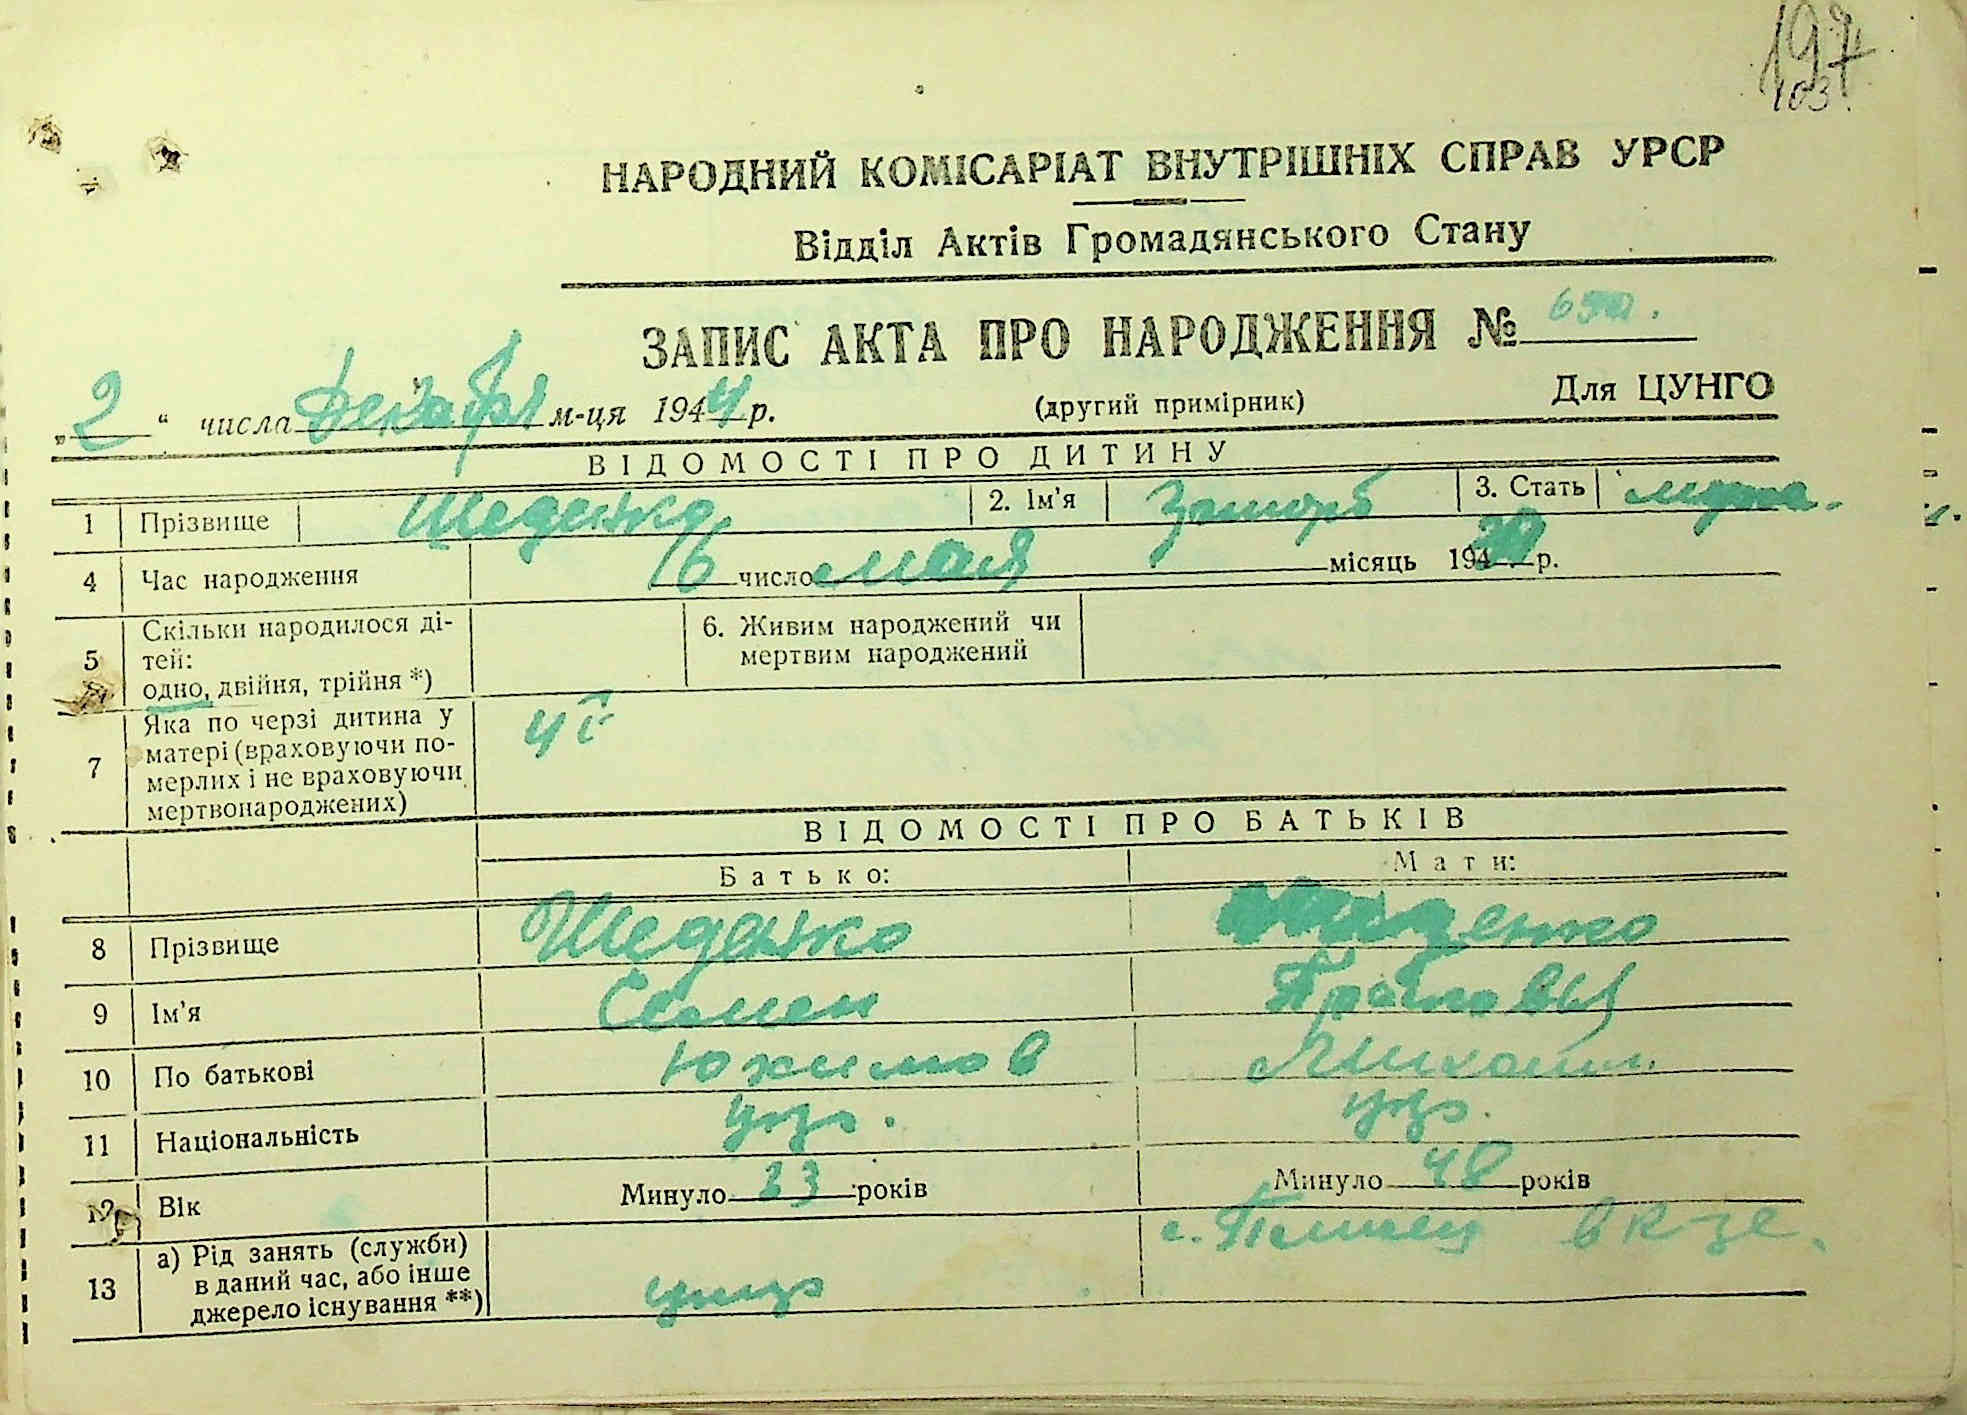 197
103
НАРОДНИЙ КОМІСАРІАТ ВНУТРІШНІХ СПРАВ УРСР
Відділ Актів Громадянського Стану
ЗАПИС АКТА ПРО НАРОДЖЕННЯ №
„ 2 “ числа Декабря м-ця 1944 р. (другий примірник) Для ЦУНГО
ВІДОМОСТІ ПРО ДИТИНУ
1 Прізвище Шеденко 2. Ім’я 3. Стать
4 Час народження 6 число мая місяць 194 р.
5 Скільки народилося ді-
тей:
одно, двійня, трійня *)
6. Живим народжений чи
мертвим народжений
7 Яка по черзі дитина у
матері (враховуючи по-
мерлих і не враховуючи
мертвонароджених)
4
ВІДОМОСТІ ПРО БАТЬКІВ
Батько: Мати:
8 Прізвище Шеденко
9 Ім’я Семен
10 По батькові Юхимов Михаил.
11 Національність укр. укр.
12 Вік Минуло 23 років Минуло 48 років
13 а) Рід занять (служби)
в даний час, або інше
джерело існування **)